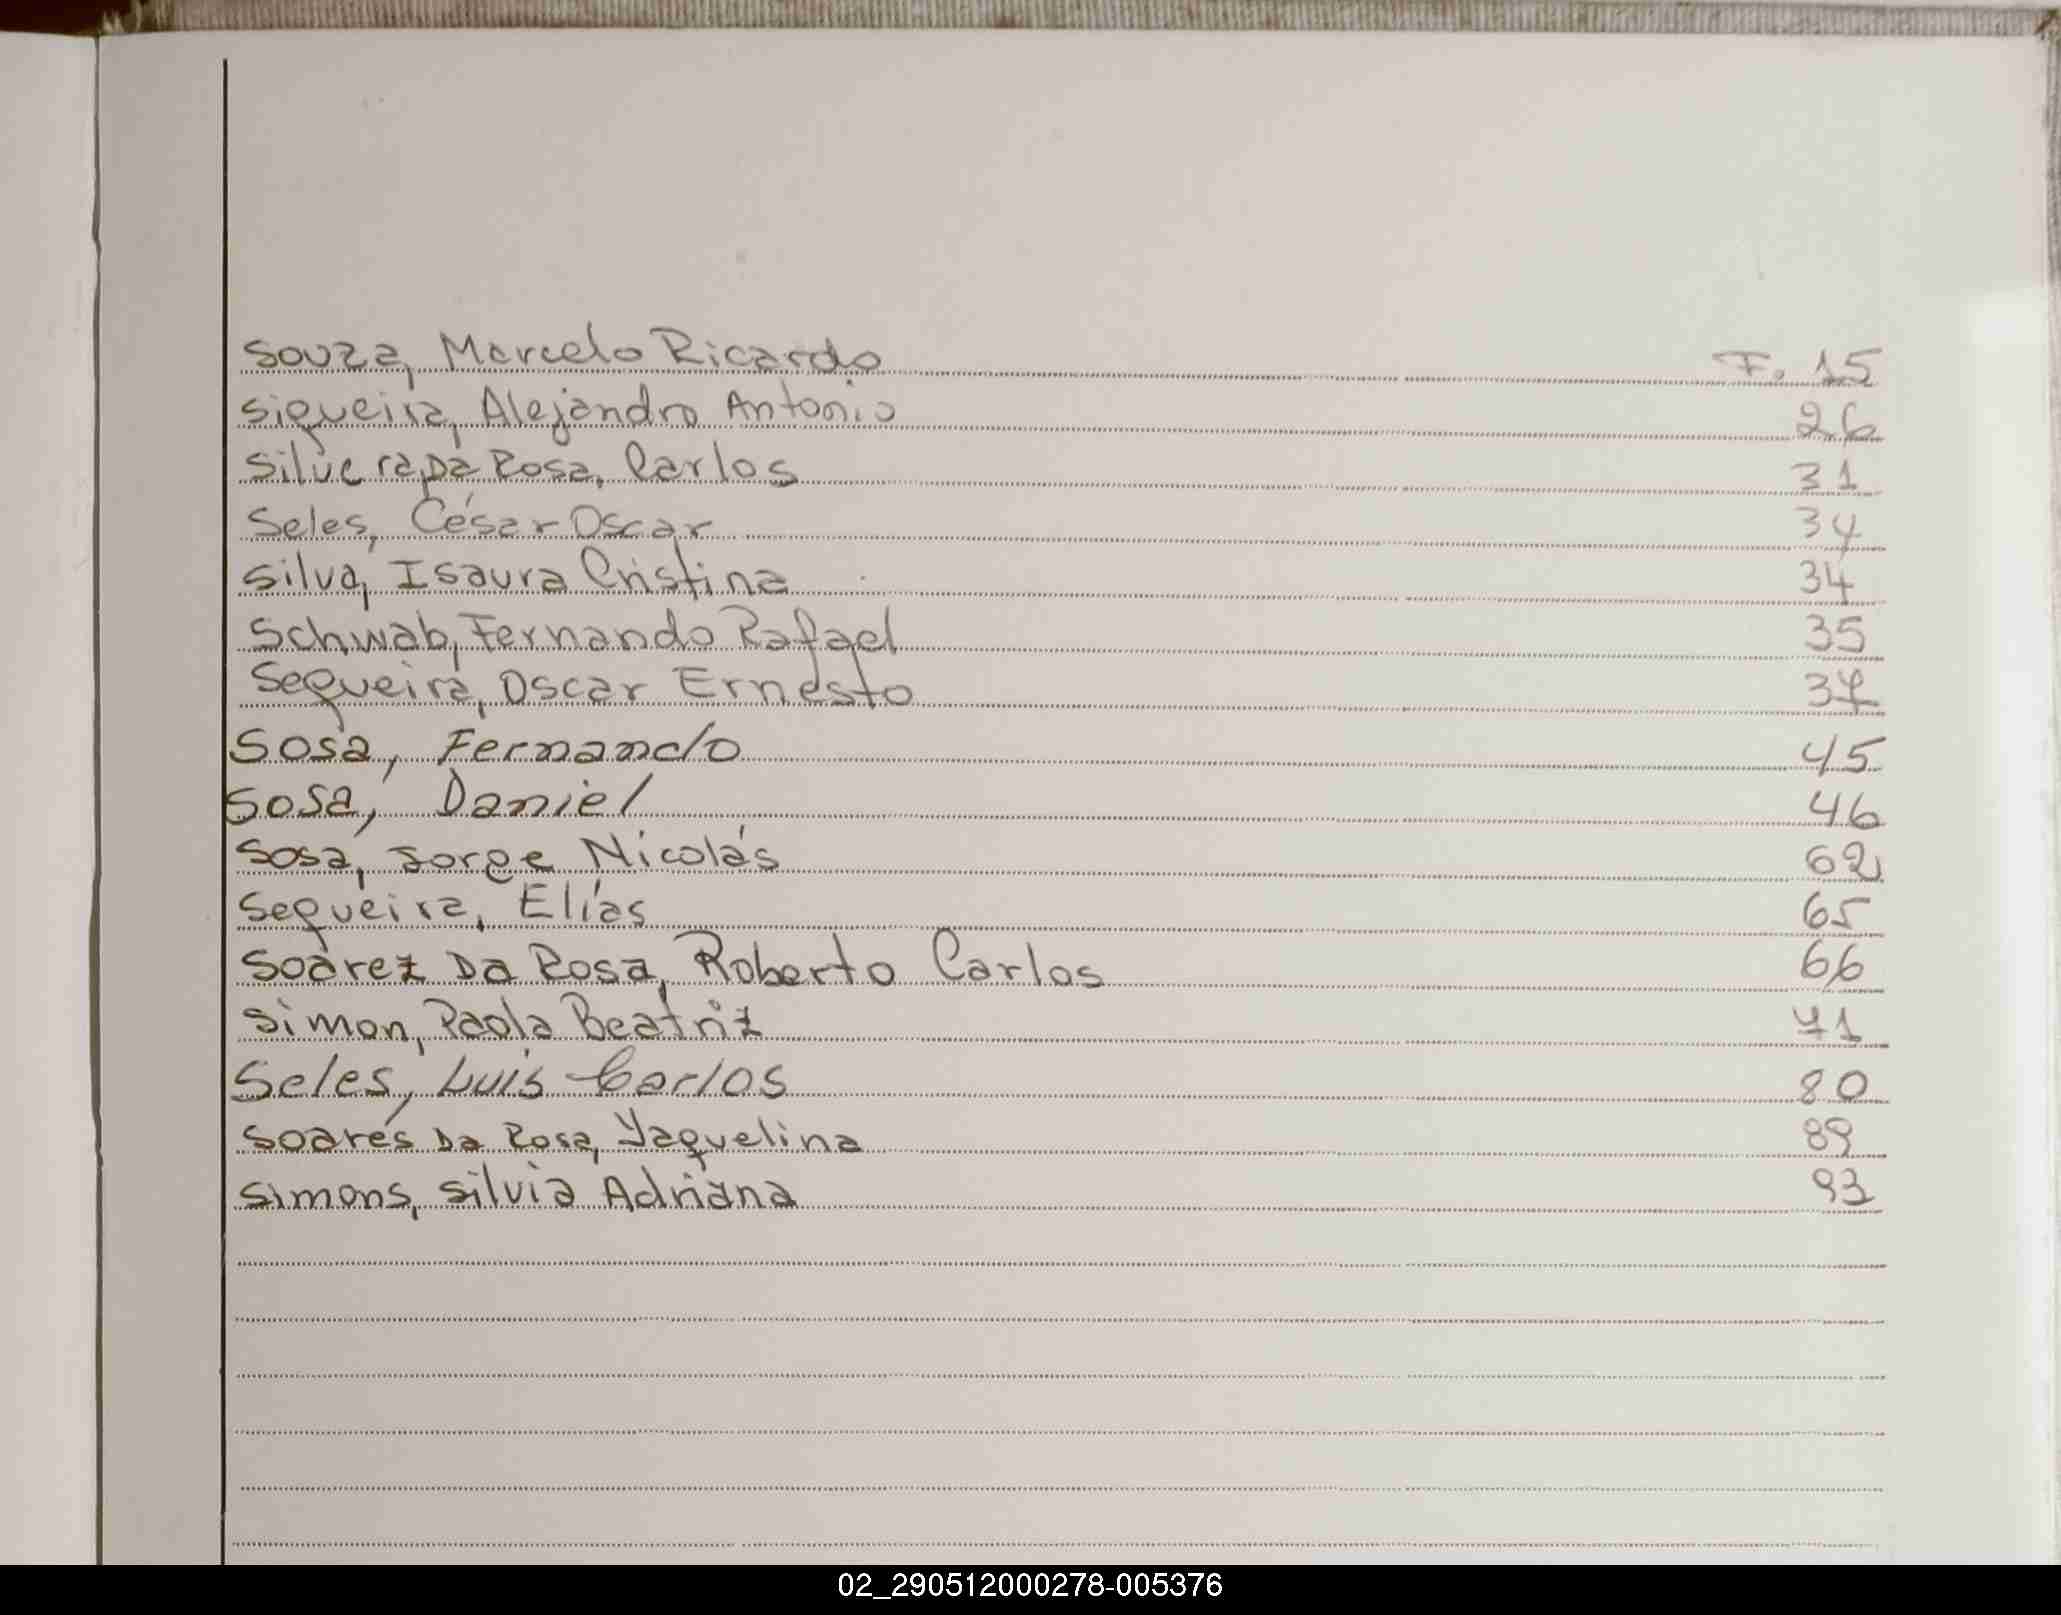 Souza, Marcelo Ricardo F. 15
Siqueira, Alejandro Antonio 26
Silvera Da Rosa, Carlos 31
Seles, César Oscar 34
Silva, Isaura Cristina 34
Schwab, Fernando Rafael 35
Sequeira, Oscar Ernesto 37
Sosa, Fernando 45
Sosa, Daniel 46
Sosa, Jorge Nicolás 62
Sequeira, Elías 65
Soarez Da Rosa, Roberto Carlos 66
Simon, Paola Beatriz 71
Seles, Luis Carlos 80
Soarés Da Rosa, Yaquelina 89
Simons, Silvia Adriana 93
02_290512000278-005376